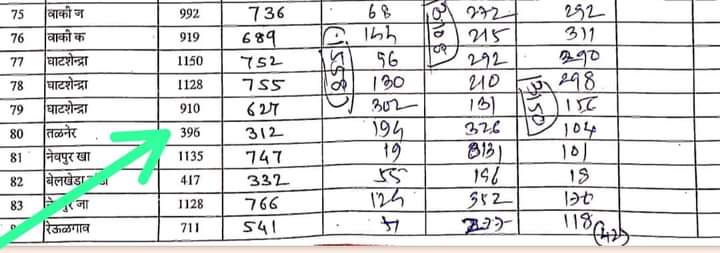 75 वाकी ज 992 736 68 272 292
76 वाकी क 919 689 144 215 311
77 घाटशेन्द्रा 1150 752 56 292 390
78 घाटशेन्द्रा 1128 755 130 210 298
79 घाटशेन्द्रा 910 627 302 131 156
80 तळनेर 396 312 194 326 104
81 नेवपुर खा 1135 747 19 101
82 बेलखेडा 417 332 55 196 18
83 जा 1128 766 124 352
रेऊळगाव 711 541 118